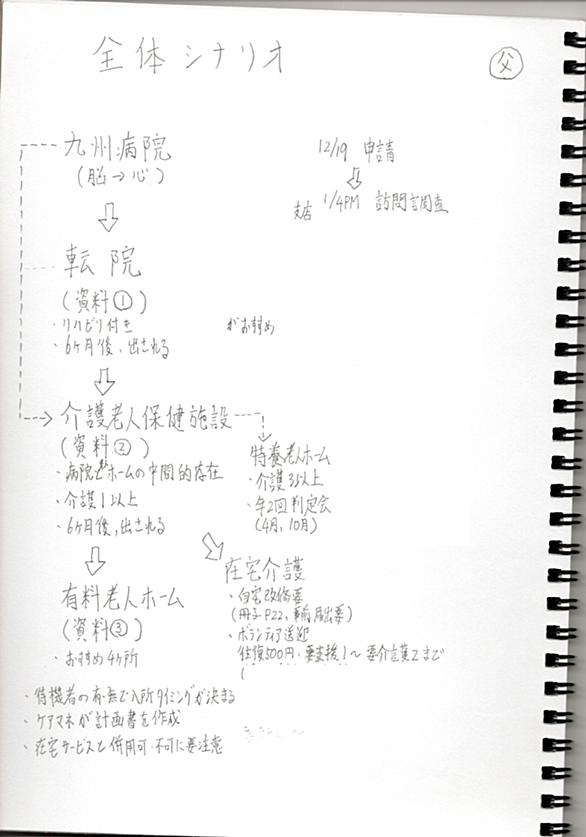 全体シナリオ
父
九州病院
(脳→心)
12/19 申請
1/4PM 訪問調査
転院
(資料①)
・リハビリ付き
がおすめ
・6ヶ月後、出される
介護老人保健施設
(資料②)
・病院とホームの中間的存在
・介護1以上
・6ヶ月後、出される
特養老人ホーム
・介護3以上
・年2回判定会
(4月、10月)
有料老人ホーム
(資料③)
・おすすめ4ヶ所
在宅介護
・自宅改修要
(冊子P22、事前届出要)
・ボランティア送迎
往復500円・要支援1〜要介護2まで
・待機者の有・無で入所タイミングが決まる
・ケアマネが計画書を作成
・在宅サービスと併用可・不可に要注意